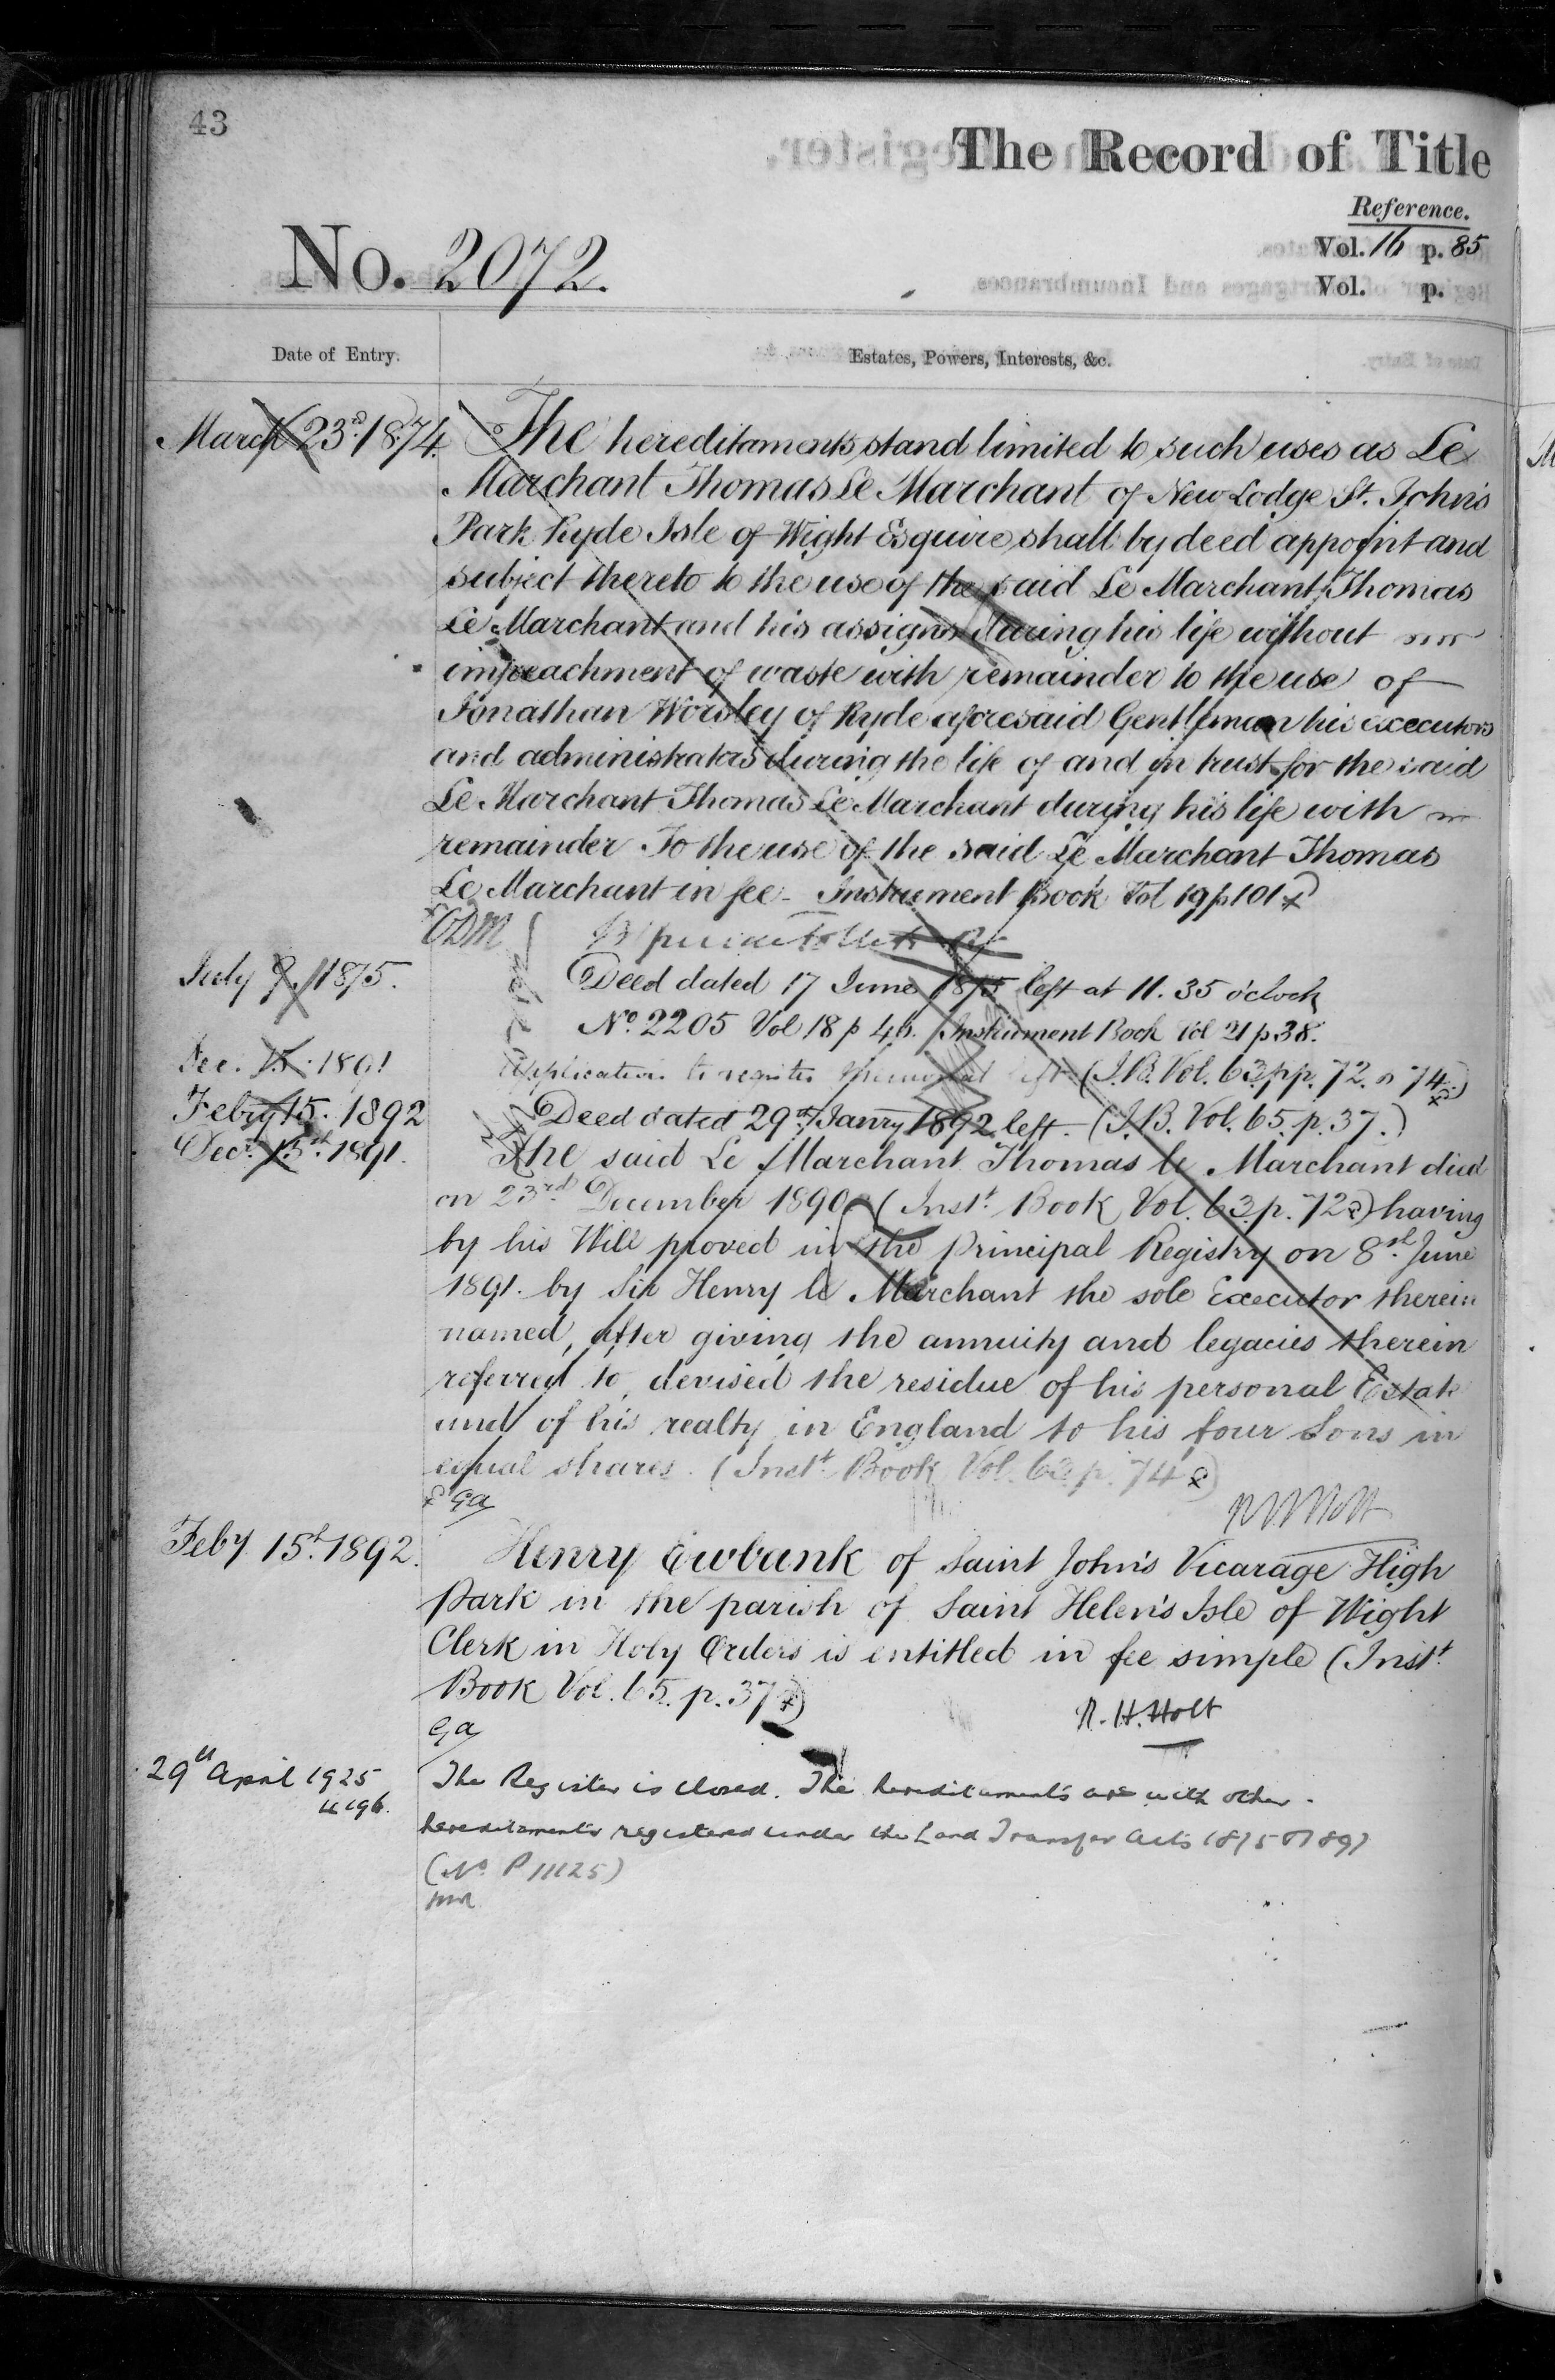 43
The Record of Title
Reference.
No. 2072.
Vol. 16 p. 85
Vol. p.
Date of Entry.
Estates, Powers, Interests, &c.
March 23d. 1874. The hereditaments stand limited to such uses as Le
Marchant Thomas Le Marchant of New Lodge St. John's
Park Ryde Isle of Wight Esquire shall by deed appoint and
subject thereto to the use of the said Le Marchant Thomas
Le Marchant and his assigns during his life without
impeachment of waste with remainder to the use of
Jonathan Worsley of Ryde aforesaid Gentleman his executors
and administrators during the life of and in trust for the said
Le Marchant Thomas Le Marchant during his life with
remainder To the use of the said Le Marchant Thomas
Le Marchant in fee - Instrument Book Vol 19 p 101
July 9. 1875. Deed dated 17 June 1875 left at 11.35 o'clock
No. 2205 Vol 18 p 46. Instrument Book Vol 21 p 38.
Dec. 15. 1891 Application to register left (I.B. Vol. 63 pp. 72. 74)
Febry 15. 1892 Deed dated 29th Janry 1892 left. (I.B. Vol. 65. p. 37.)
Dec. 15th 1891. The said Le Marchant Thomas le Marchant died
on 23rd December 1890 (Inst.t Book Vol. 63. p. 72) having
by his Will proved in the Principal Registry on 8th June
1891. by Sir Henry le Marchant the sole Executor therein
named, after giving the annuity and legacies therein
referred to, devised the residue of his personal Estate
and of his realty in England to his four Sons in
equal shares. (Inst.t Book Vol. 63 p. 74)
Feby 15th. 1892. Henry Ewbank of Saint John's Vicarage High
Park in the parish of Saint Helen's Isle of Wight
Clerk in Holy Orders is entitled in fee simple (Inst.t
Book Vol. 65. p. 37)
R. H. Holt
29th April 1925 The Register is closed. The hereditaments are with other
hereditaments registered under the Land Transfer Acts 1875 & 1897
(No. P 11125)